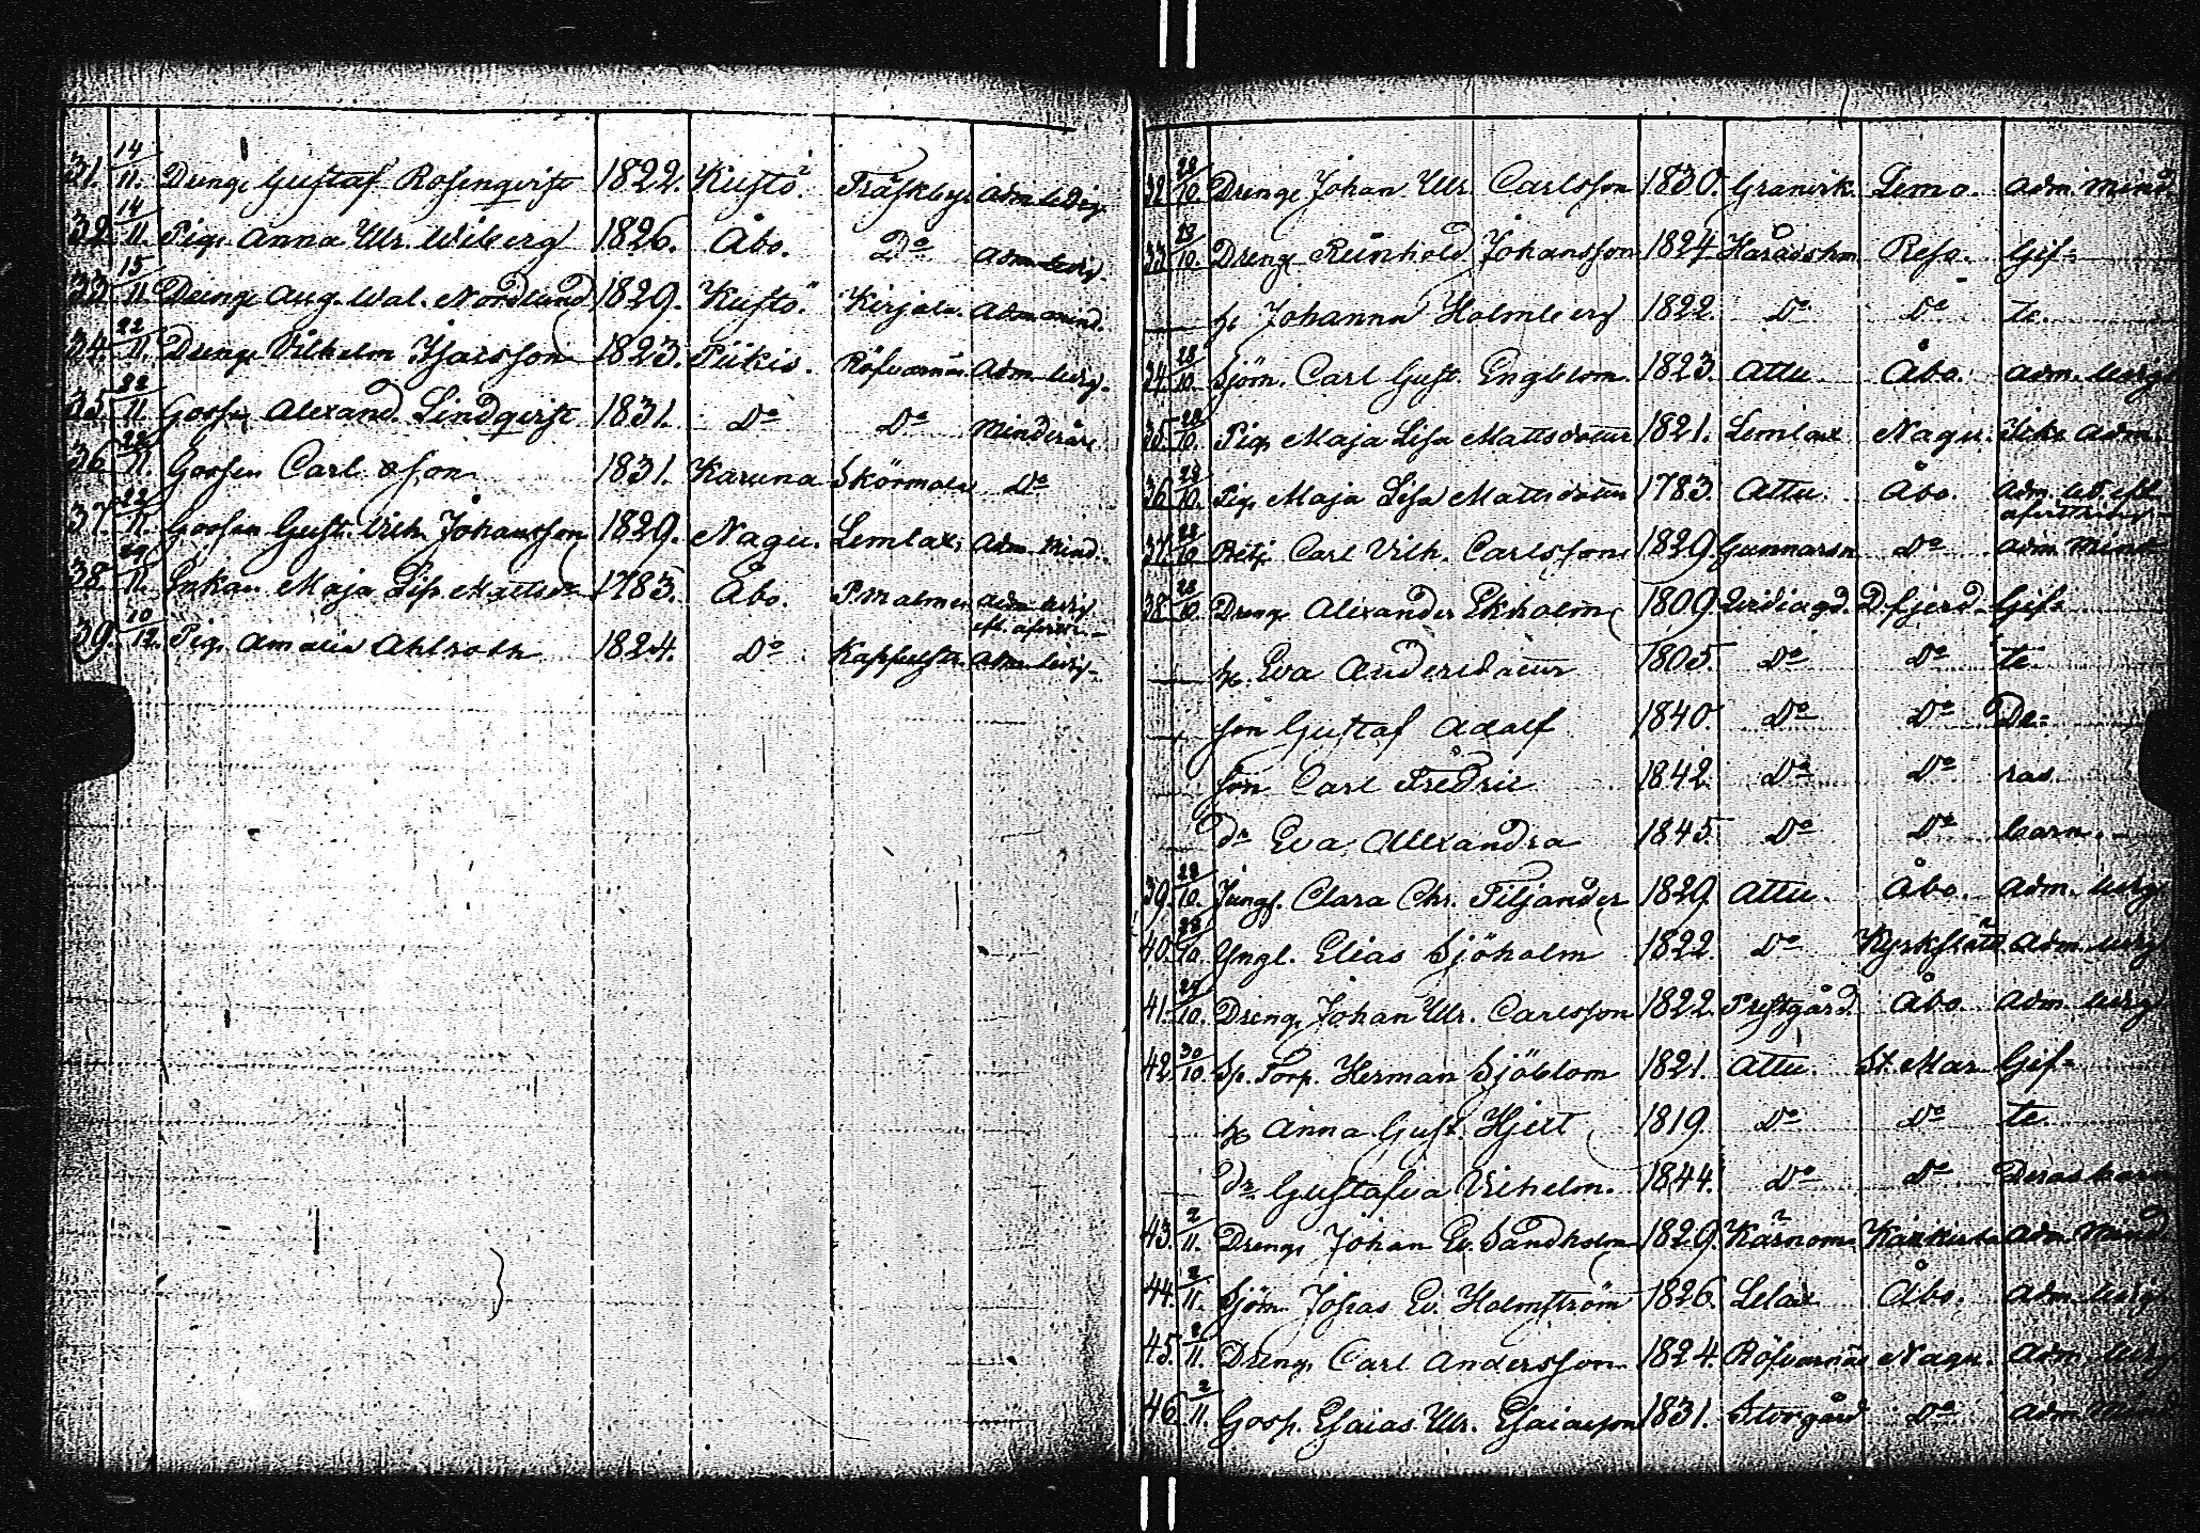 31. 14/11. Drenge Gustaf Rosenqvist 1822. Kustö. Träskby Adm. ledig.
32. 14/11. Pig. Anna Ulr. Wiberg 1826. Åbo. Do Adm. ledig.
33. 15/11. Drenge Aug. Wal. Nordlund 1829. Kustö. Kirjala. Adm. mind.
34. 22/11. Drenge Vilhelm Isacsson 1823. Piikis. Röfvarnäs. Adm. ledig.
35. 22/11. Gossen Alexand. Lindqvist 1831. Do Do Minderåri
36. 22/11. Gossen Carl oson 1831. Karuna Skörmola Do
37. 22/11. Gossen Gust. Vilh. Johansson 1829. Nagu. Lemlax. Adm. Mind.
38. 29/11. Enkan Maja Lisa Mattsdr 1783. Åbo. P.malmen Adm. ledig
eft. afsittn. -
39. 10/12. Pig. Amalia Ahlroth 1824. Do Kappelstr. Adm. ledig -
32. 28/10. Drenge Johan Ulr. Carlsson 1830. Granvik. Lemo. Adm. Mind
33. 23/10. Drenge Reinhold Johansson 1824 Häradshm Reso. Gif-
h. Johanna Holmberg 1822. Do Do te.
34. 28/10. Sjöm. Carl Gust. Engblom. 1823. Attu. Åbo. Adm. ledig
35. 28/10. Pig. Maja Lisa Mattsdotter 1821. Lemlax Nagu. Icke Adm.
36. 28/10. Pig. Maja Lisa Mattsdotter 1783. Attu. Åbo. Adm. led. eft.
afsittning
37. 28/10. Betj. Carl Vilh. Carlsson 1829. Gunnarsn Do Adm. Mind
38. 28/10. Dreng. Alexander Ekholm 1809. D.fjerd. Gif-
h. Eva Andersdotter 1805. Do Do te.
son Gustaf Adolf 1840. Do Do De-
son Carl Fredric 1842. Do Do ras
dr Eva Alexandra 1845. Do Do barn. -
39. 28/10. Jungf. Clara Chr. Tiljander 1829 Attu. Åbo. Adm. ledig
40. 28/10. Yngl. Elias Sjöholm 1822. Do Kyrkslätt Adm. ledig
41. 29/10. Dreng. Johan Ulr. Carlsson 1822. Prestgård. Åbo. Adm. ledig
42. 30/10. Sp. Torp. Herman Sjöblom 1821. Attu. St. Mar. Gif-
h. Anna Gust. Hjert 1819. Do Do te.
dr. Gustafva Vilhelm. 1844. Do Do Deras barn
43. 2/11. Dreng. Johan Ev. Sandholm 1829. Kärnom. Karkista Adm. Mind
44. 2/11. Sjöm. Josias Ev. Holmström 1826. Lelax Åbo. Adm. ledig
45. 2/11. Dreng. Carl Andersson 1824. Röfvarnäs Nagu. Adm. ledig
46. 2/11. Goss. Esaias Ulr. Esaiasson 1831. Storgård Do Adm. Mind